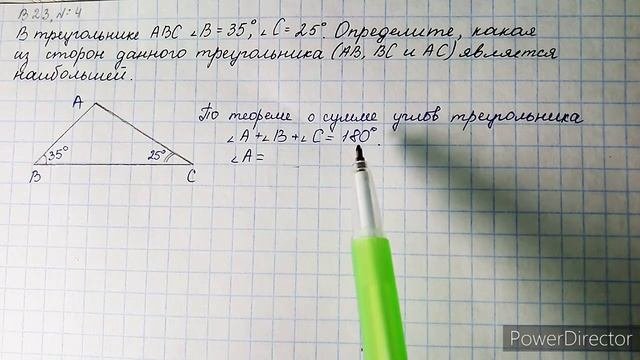 В 23, №4
В треугольнике ABC ∠B = 35°, ∠C = 25°. Определите, какая
из сторон данного треугольника (AB, BC и AC) является
наибольшей.
По теореме о сумме углов треугольника
∠A + ∠B + ∠C = 180°.
∠A =
A
35°
25°
B
C
PowerDirector